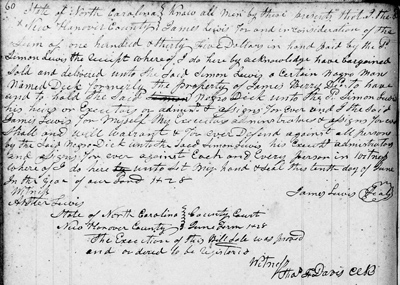 60 State of North Carolina } Know all Men by these presents that I the
New Hanover County } James Lewis for and in consideration of the
Sum of one hundred & thirty five Dollars in hand paid by the Sd
Simon Lewis the Receipt whereof I do here by acknowledge have bargained
Sold and delivered unto the Said Simon Lewis a Certain Negro Man
Named Dick formerly the property of James Berry Decd To have
and to hold the Said Negro Dick unto the Sd Simon Lewis
his heirs Executors adminrs & assigns for Ever and the Said
James Lewis for Myself My Executors administrators & assigns for ever
Shall and will Warrant & for Ever Defend against all persons
by the Said Negro Dick unto the Said Simon Lewis, his Execut administrators
and assigns for ever against Each and Every person in Witness
whereof I do here unto Set My hand & Seal this tenth day of June
In the year of our Lord 1828
Witness
James Lewis (Seal)
Arther Lewis
State of North Carolina } County Court
New Hanover County } June Term 1828
The Execution of this Bill Sale was proved
and ordered to be registered
Witness
Thos F Davis CCK